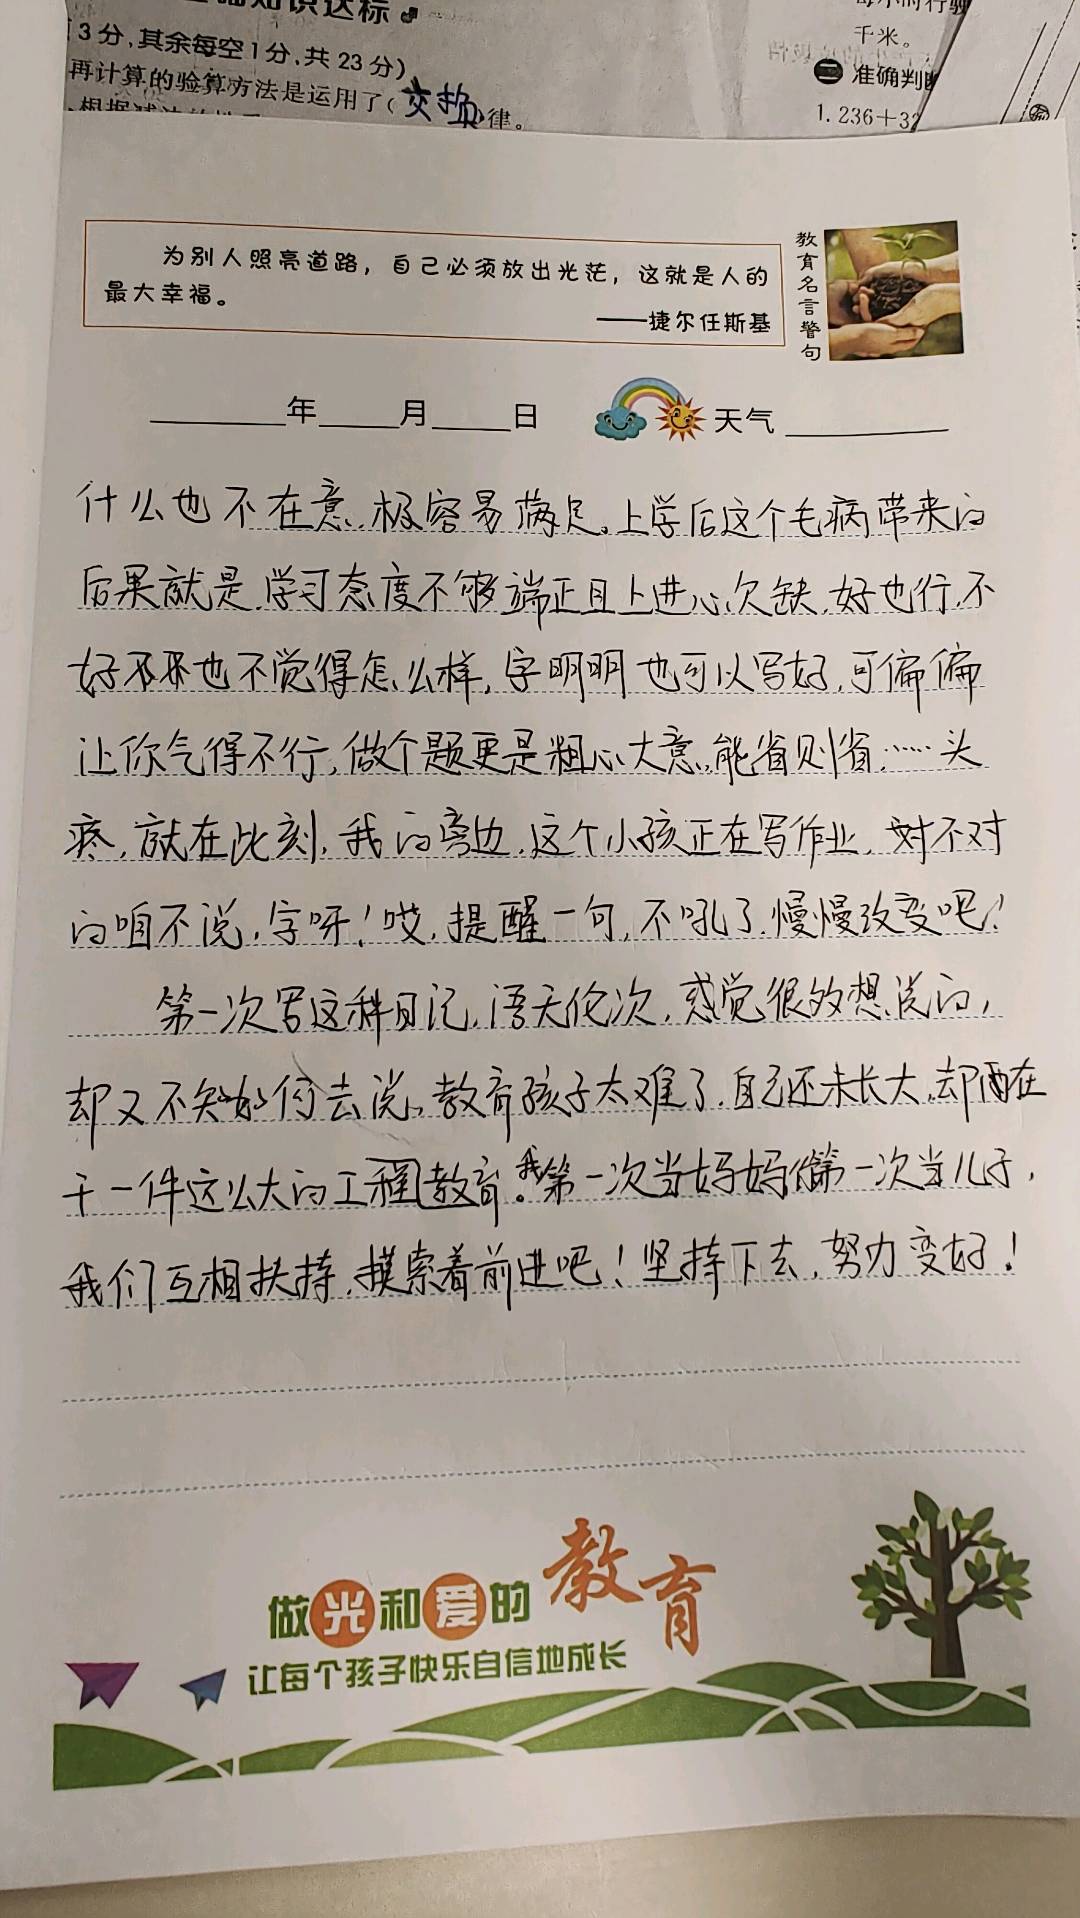 基础知识达标
3分,其余每空1分,共23分)
再计算的验算方法是运用了(交换)律。
千米。
二 准确判断
1. 236+32
为别人照亮道路,自己必须放出光芒,这就是人的
最大幸福。
——捷尔任斯基
教育名言警句
年 月 日 天气
什么也不在意,极容易满足。上学后这个毛病带来的
后果就是,学习态度不够端正且上进心欠缺,好也行,不
好也不觉得怎么样,字明明也可以写好,可偏偏
让你气得不行,做个题更是粗心大意,能省则省……头
疼,就在此刻,我的旁边,这个小孩正在写作业,对不对
的咱不说,字呀!哎,提醒一句,不吼了,慢慢改变吧!
第一次写这种日记,语无伦次,感觉很多想说的,
却又不知如何去说。教育孩子太难了,自己还未长大,却要在
干一件这么大的工程教育。我第一次当妈妈你第一次当儿子,
我们互相扶持,摸索着前进吧!坚持下去,努力变好!
做光和爱的教育
让每个孩子快乐自信地成长